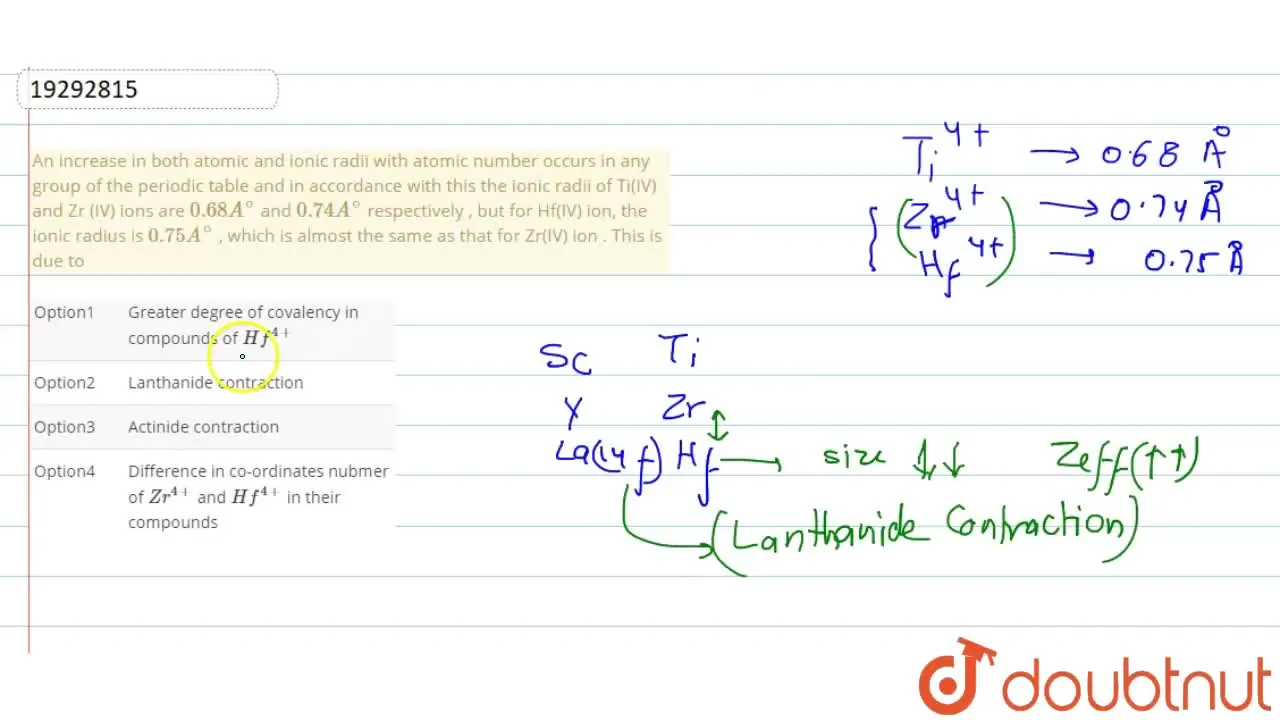 19292815
An increase in both atomic and ionic radii with atomic number occurs in any
group of the periodic table and in accordance with this the ionic radii of Ti(IV)
and Zr (IV) ions are 0.68A° and 0.74A° respectively , but for Hf(IV) ion, the
ionic radius is 0.75A° , which is almost the same as that for Zr(IV) ion . This is
due to
Option1 Greater degree of covalency in
compounds of Hf⁴⁺
Option2 Lanthanide contraction
Option3 Actinide contraction
Option4 Difference in co-ordinates nubmer
of Zr⁴⁺ and Hf⁴⁺ in their
compounds
Ti⁴⁺ → 0.68 Å
Zr⁴⁺ → 0.74 Å
Hf⁴⁺ → 0.75 Å
Sc Ti
Y Zr ↕
La(14f) Hf → size ↓↓ Zeff(↑↑)
(Lanthanide Contraction)
doubtnut